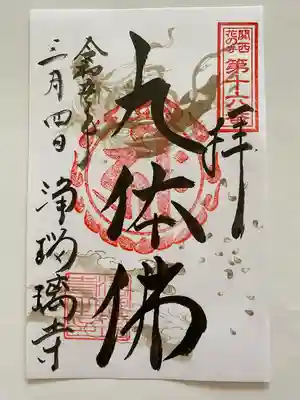 関西
花の寺
第十六番
奉拝
九体佛
令和五年
三月四日
浄瑠璃寺